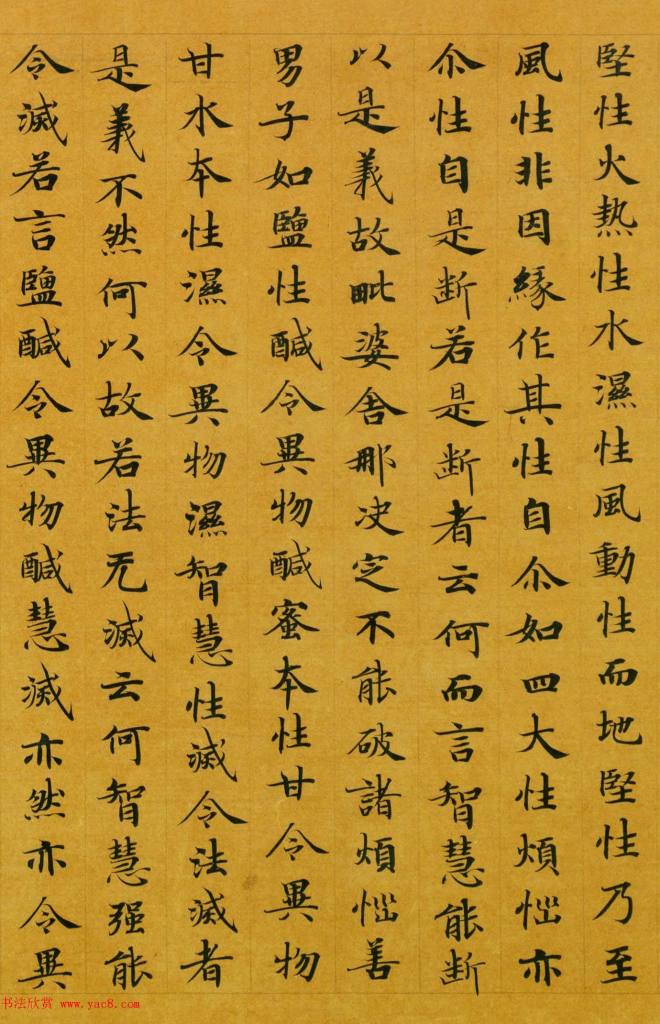 堅性火熱性水濕性風動性而地堅性乃至
風性非因緣作其性自尒如四大性煩惱亦
尒性自是断若是断者云何而言智慧能断
以是義故毗婆舍那决定不能破諸煩惱善
男子如鹽性醎令異物醎蜜本性甘令異物
甘水本性濕令異物濕智慧性滅令法滅者
是義不然何以故若法无滅云何智慧强能
令滅若言鹽醎令異物醎慧滅亦然亦令異
书法欣赏 www.yac8.com